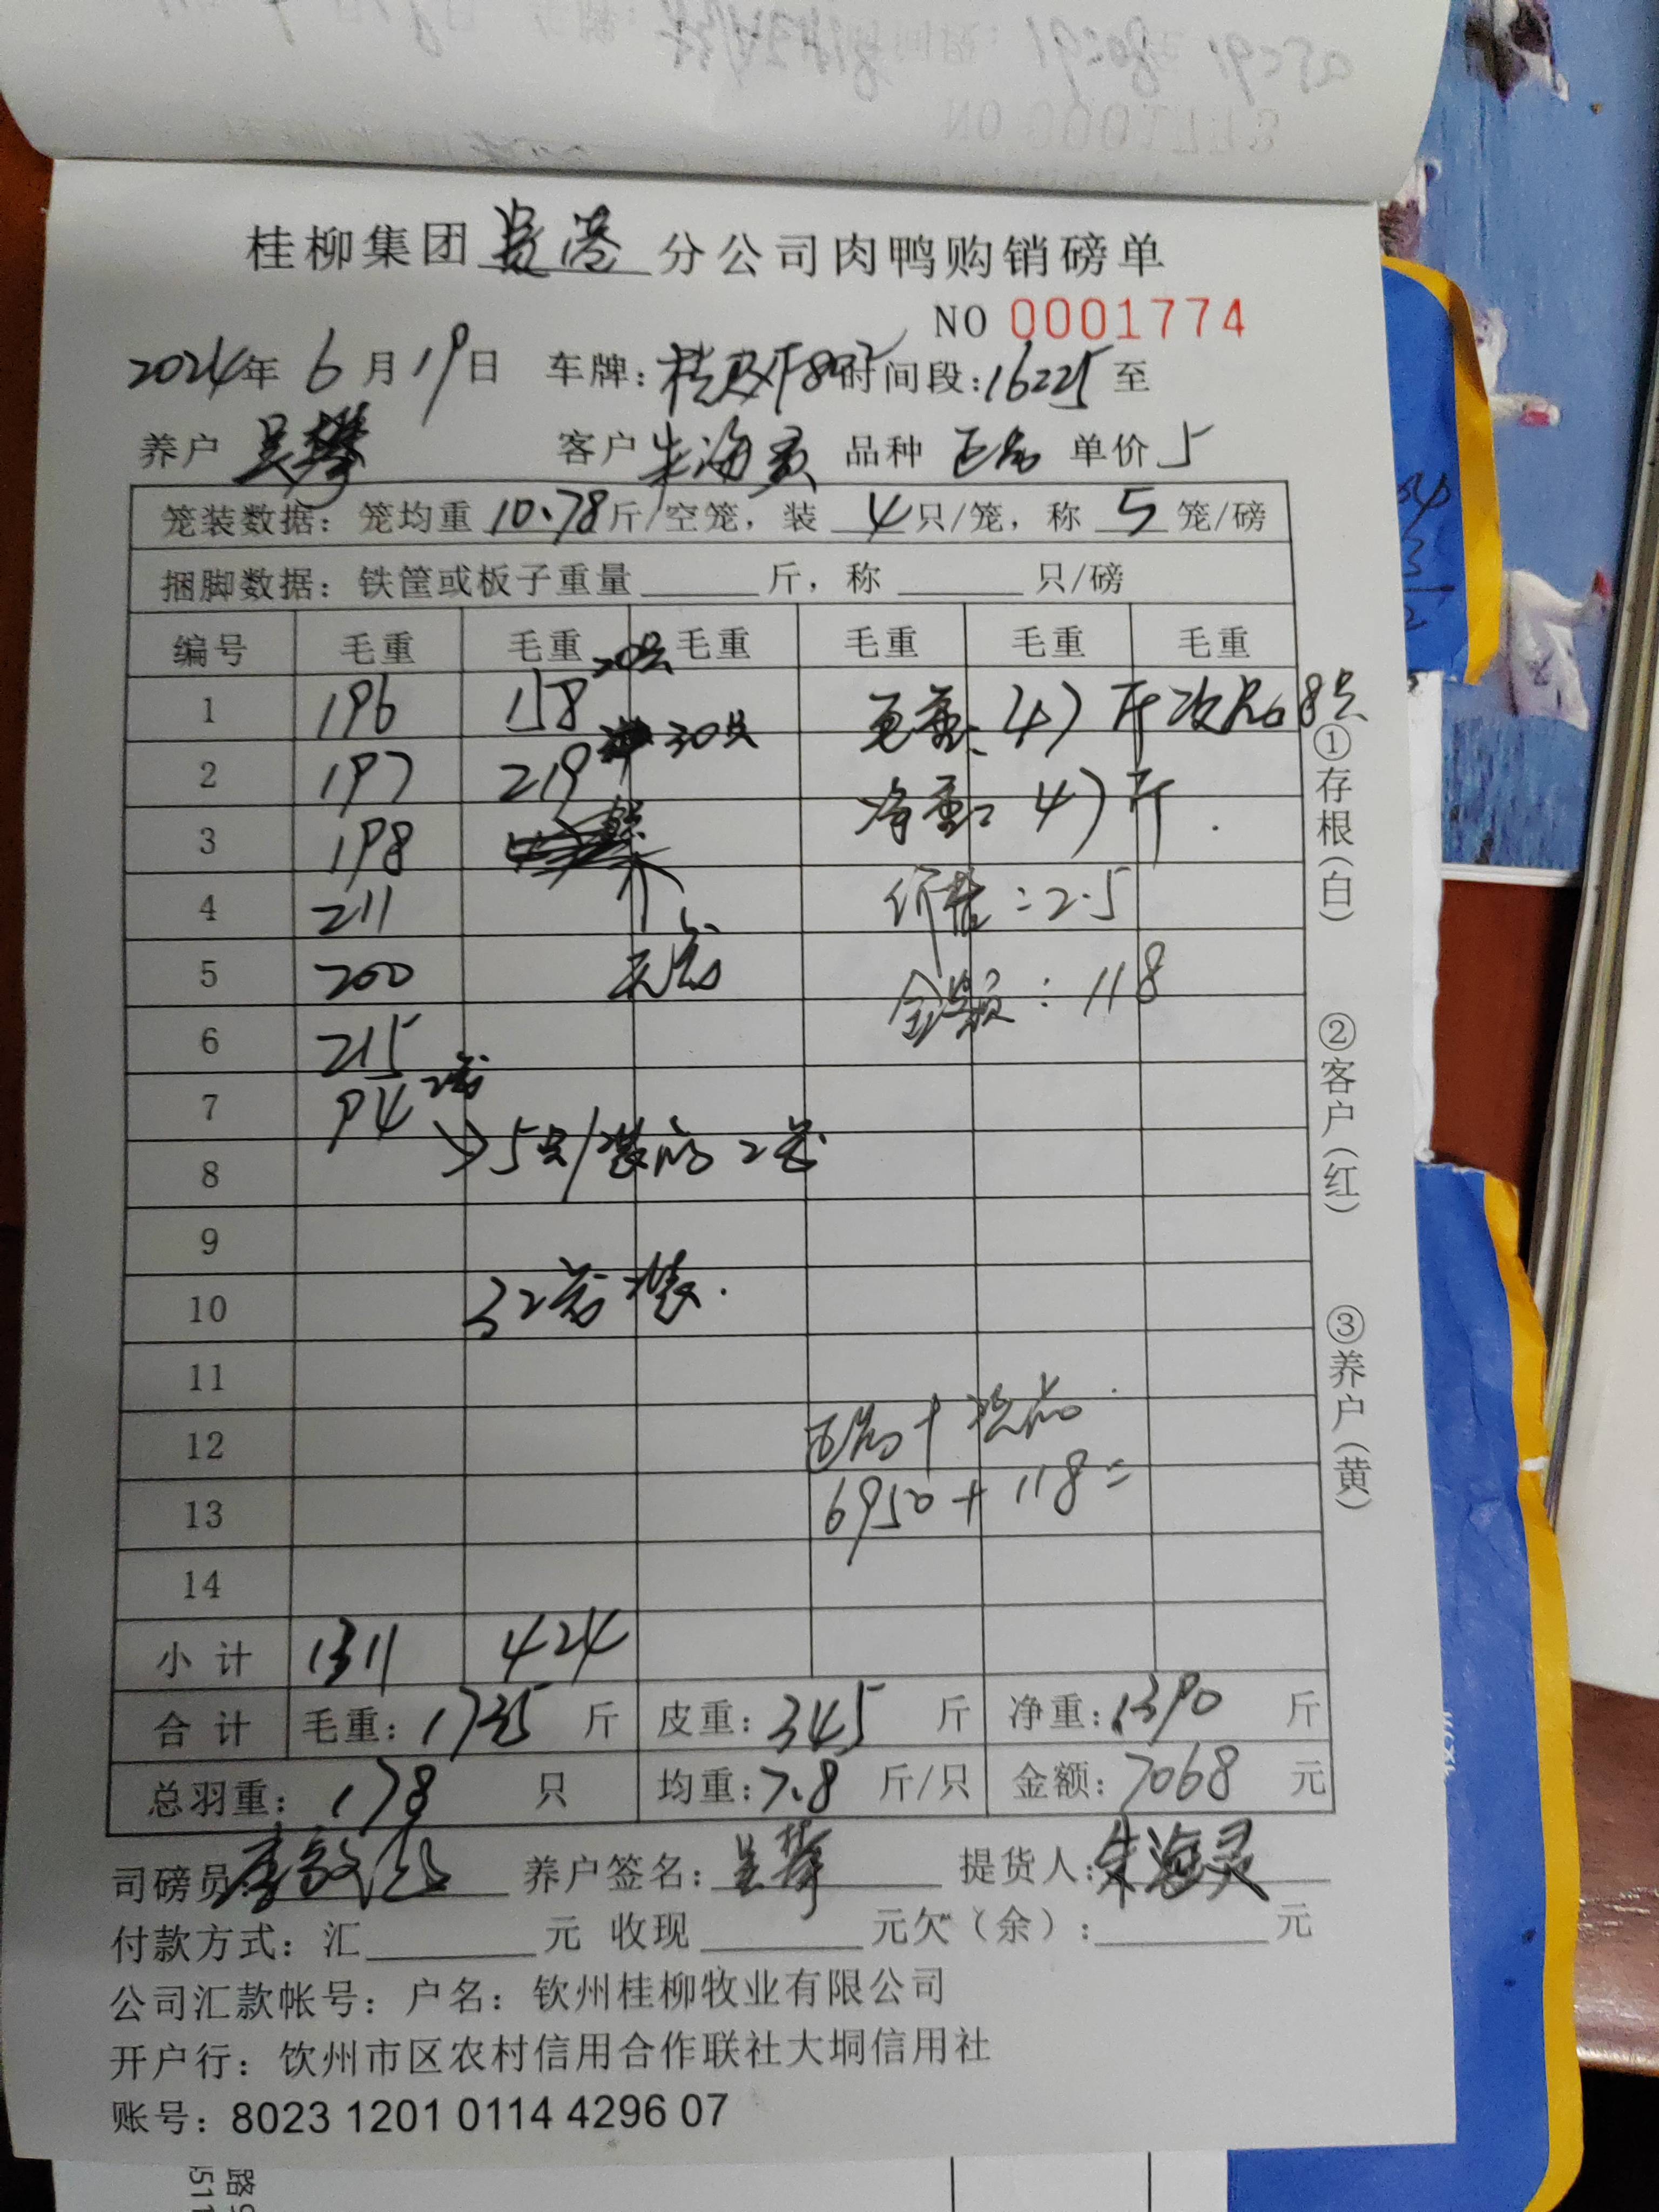 桂柳集团 贵港 分公司肉鸭购销磅单
NO 0001774
2024年 6月19日 车牌: 时间段:16225 至
养户 吴攀 客户 朱海灵 品种 正品 单价 5
笼装数据: 笼均重 10.78 斤/空笼, 装 4 只/笼, 称 5 笼/磅
捆脚数据: 铁筐或板子重量 斤, 称 只/磅
编号 毛重 毛重 毛重 毛重 毛重 毛重
1 196 158 20只 毛重: 47斤 次品8只
2 197 219 30只 净重: 47斤
3 198
4 211 价格:2.5
5 200 金额:118
6 215
7 94 2笼
8 5只/装的2笼
9
10 32笼装.
11
12 正品+次品
13 6950+118=
14
小计 1311 424
合计 毛重: 1735 斤 皮重: 345 斤 净重: 1390 斤
总羽重: 178 只 均重: 7.8 斤/只 金额: 7068 元
司磅员: 养户签名: 吴攀 提货人: 朱海灵
付款方式: 汇 元 收现 元欠(余): 元
公司汇款帐号: 户名: 钦州桂柳牧业有限公司
开户行: 钦州市区农村信用合作联社大垌信用社
账号: 8023 1201 0114 4296 07
①存根(白)
②客户(红)
③养户(黄)